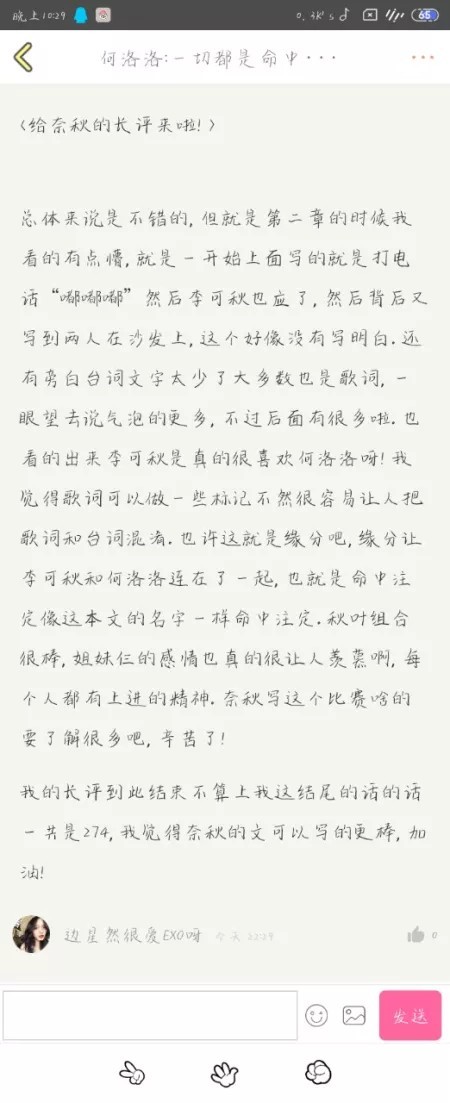 晚上10:29
0.3K/s
65
何洛洛:一切都是命中···
<给奈秋的长评来啦!>
总体来说是不错的,但就是第二章的时候我
看的有点懵,就是一开始上面写的就是打电
话“嘟嘟嘟”然后李可秋也应了,然后背后又
写到两人在沙发上,这个好像没有写明白.还
有旁白台词文字太少了大多数也是歌词,一
眼望去说气泡的更多,不过后面有很多啦.也
看的出来李可秋是真的很喜欢何洛洛呀!我
觉得歌词可以做一些标记不然很容易让人把
歌词和台词混淆.也许这就是缘分吧,缘分让
李可秋和何洛洛连在了一起,也就是命中注
定像这本文的名字一样命中注定.秋叶组合
很棒,姐妹仨的感情也真的很让人羡慕啊,每
个人都有上进的精神.奈秋写这个比赛啥的
要了解很多吧,辛苦了!
我的长评到此结束不算上我这结尾的话的话
一共是274,我觉得奈秋的文可以写的更棒,加
油!
边星然很爱EXO呀 今天 22:29
0
发送